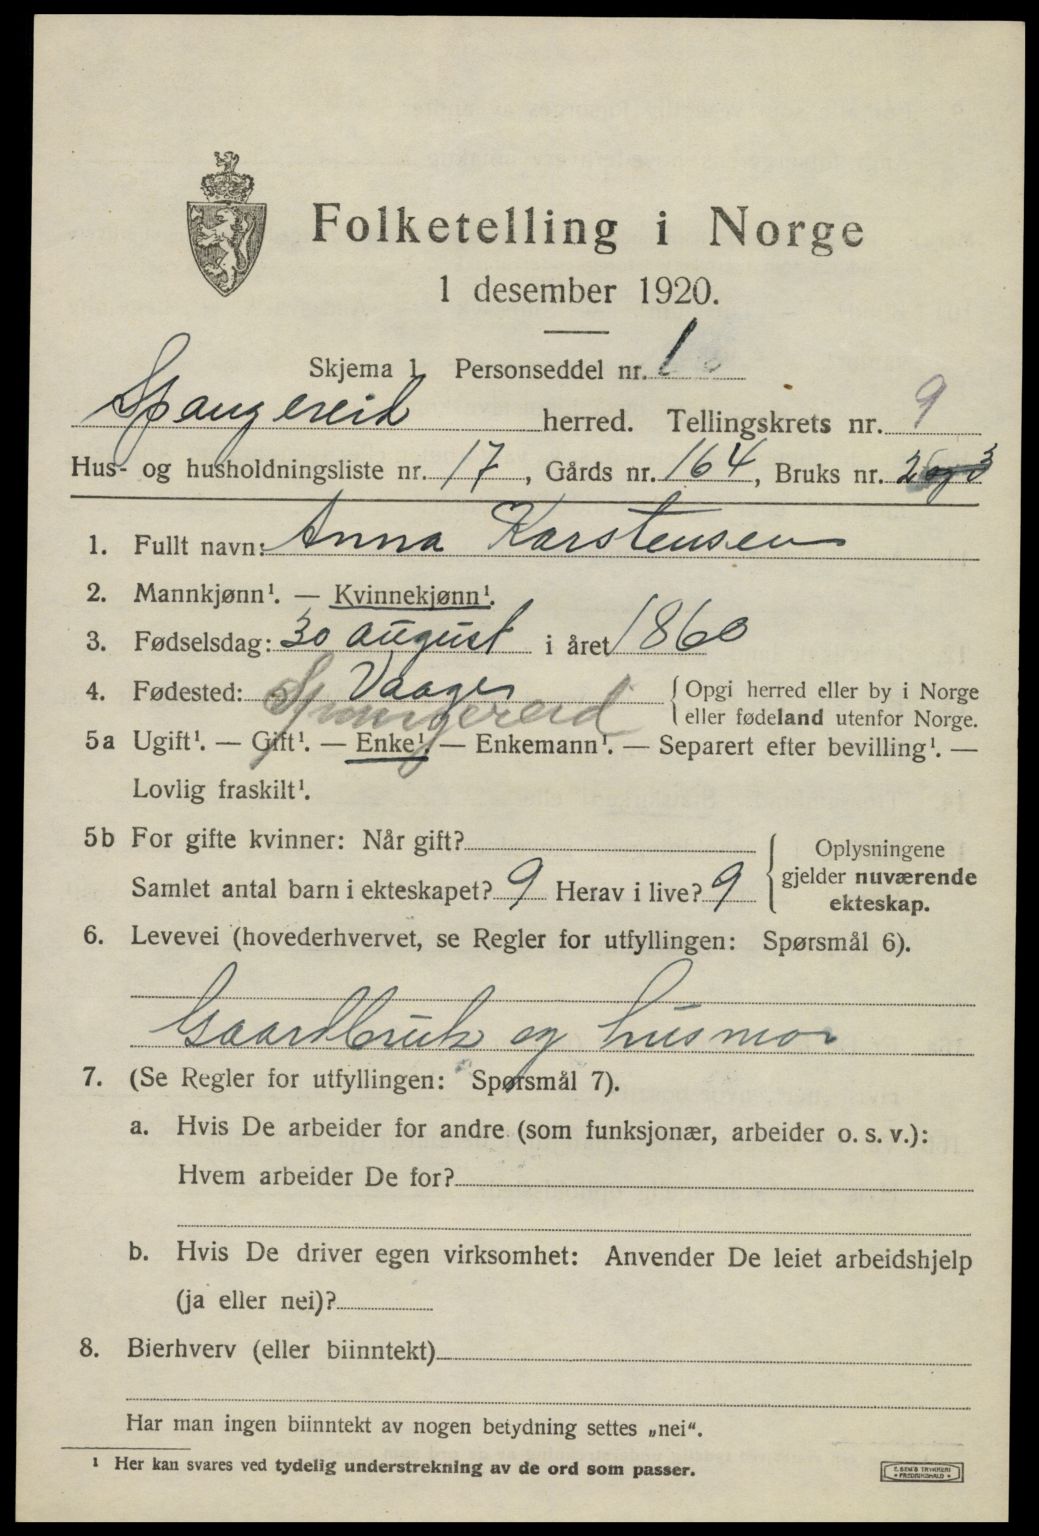 Folketelling i Norge
1 desember 1920.
Skjema 1 Personseddel nr. 1
Spangereid herred. Tellingskrets nr. 9
Hus- og husholdningsliste nr. 17, Gårds nr. 164, Bruks nr. 2 og 3
1. Fullt navn: Anna Karstensen
2. Mannkjønn¹. — Kvinnekjønn¹.
3. Fødselsdag: 30 august i året 1860
4. Fødested: Vaages Spangereid {Opgi herred eller by i Norge
eller fødeland utenfor Norge.
5a Ugift¹. — Gift¹. — Enke¹. — Enkemann¹. — Separert efter bevilling¹. —
Lovlig fraskilt¹.
5b For gifte kvinner: Når gift?
Samlet antal barn i ekteskapet? 9 Herav i live? 9
{Oplysningene
gjelder nuværende
ekteskap.
6. Levevei (hovederhvervet, se Regler for utfyllingen: Spørsmål 6).
Gaardbruk og husmor
7. (Se Regler for utfyllingen: Spørsmål 7).
a. Hvis De arbeider for andre (som funksjonær, arbeider o. s. v.):
Hvem arbeider De for?
b. Hvis De driver egen virksomhet: Anvender De leiet arbeidshjelp
(ja eller nei)?
8. Bierhverv (eller biinntekt)
Har man ingen biinntekt av nogen betydning settes „nei“.
¹ Her kan svares ved tydelig understrekning av de ord som passer.
E. SEM'S TRYKKERI
FREDRIKSHALD